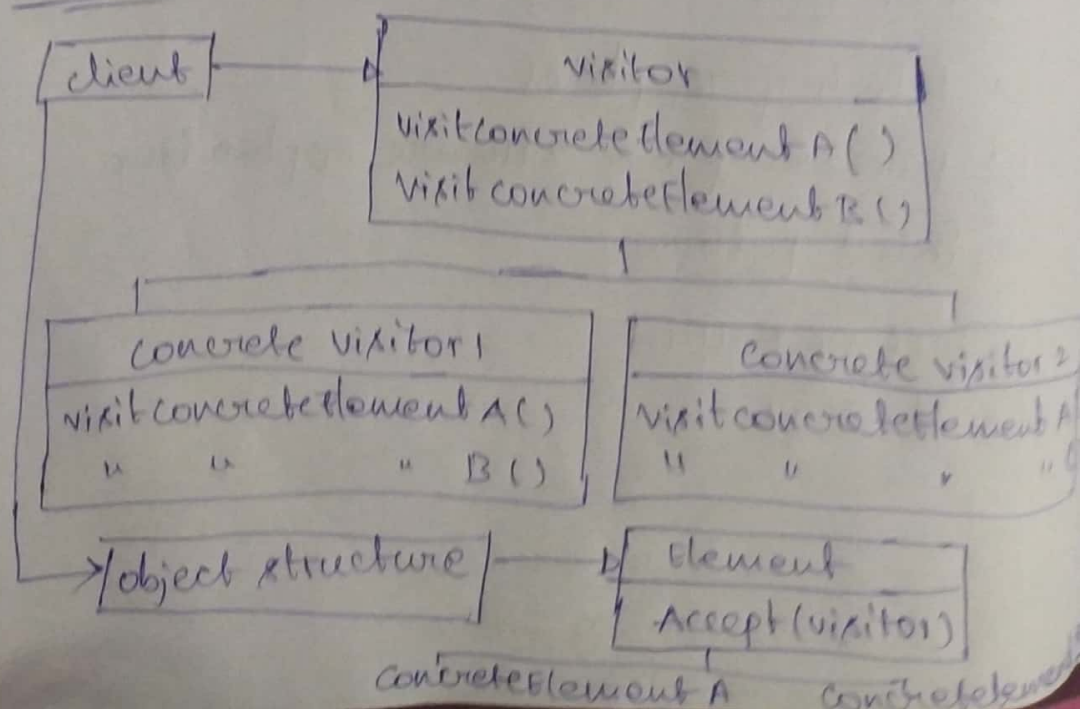 client
visitor
visitconcreteElement A ( )
visit concreteElement B ( )
concrete visitor 1
visitconcreteElement A ( )
" " " B ( )
Concrete visitor 2
visitconcreteElement A
" " " "
object structure
Element
Accept (visitor)
ConcreteElement A